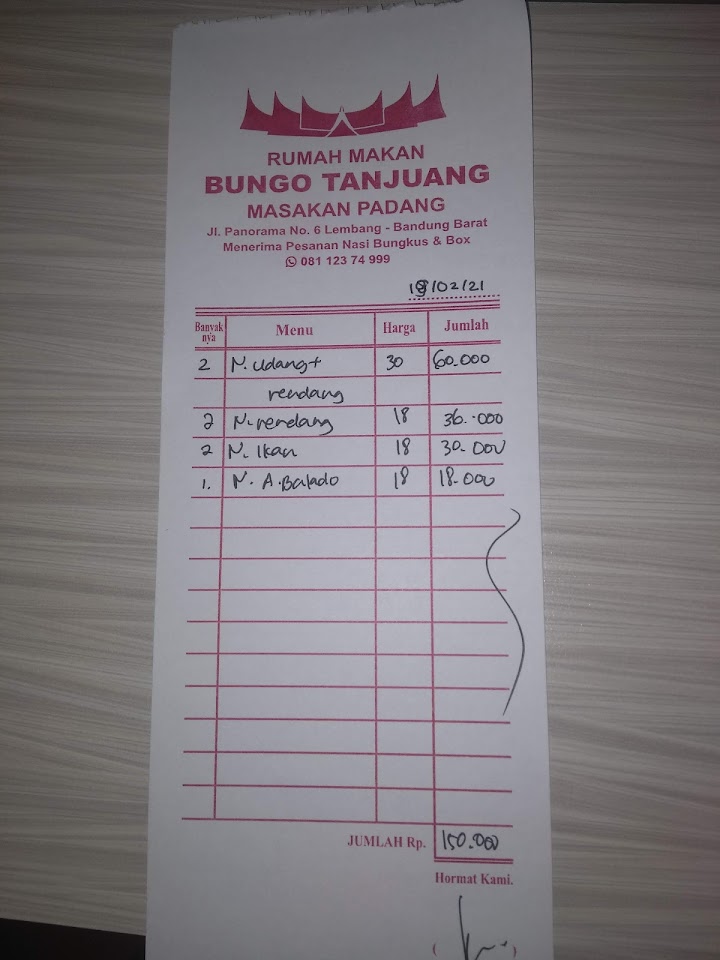 RUMAH MAKAN
BUNGO TANJUANG
MASAKAN PADANG
Jl. Panorama No. 6 Lembang - Bandung Barat
Menerima Pesanan Nasi Bungkus & Box
081 123 74 999
/02/21
Banyak nya Menu Harga Jumlah
2 N. Udang+ 30 60.000
rendang
2 N. rendang 18 36.000
2 N. Ikan 18 30.000
1. N. A. Balado 18 18.000
JUMLAH Rp. 150.000
Hormat Kami.